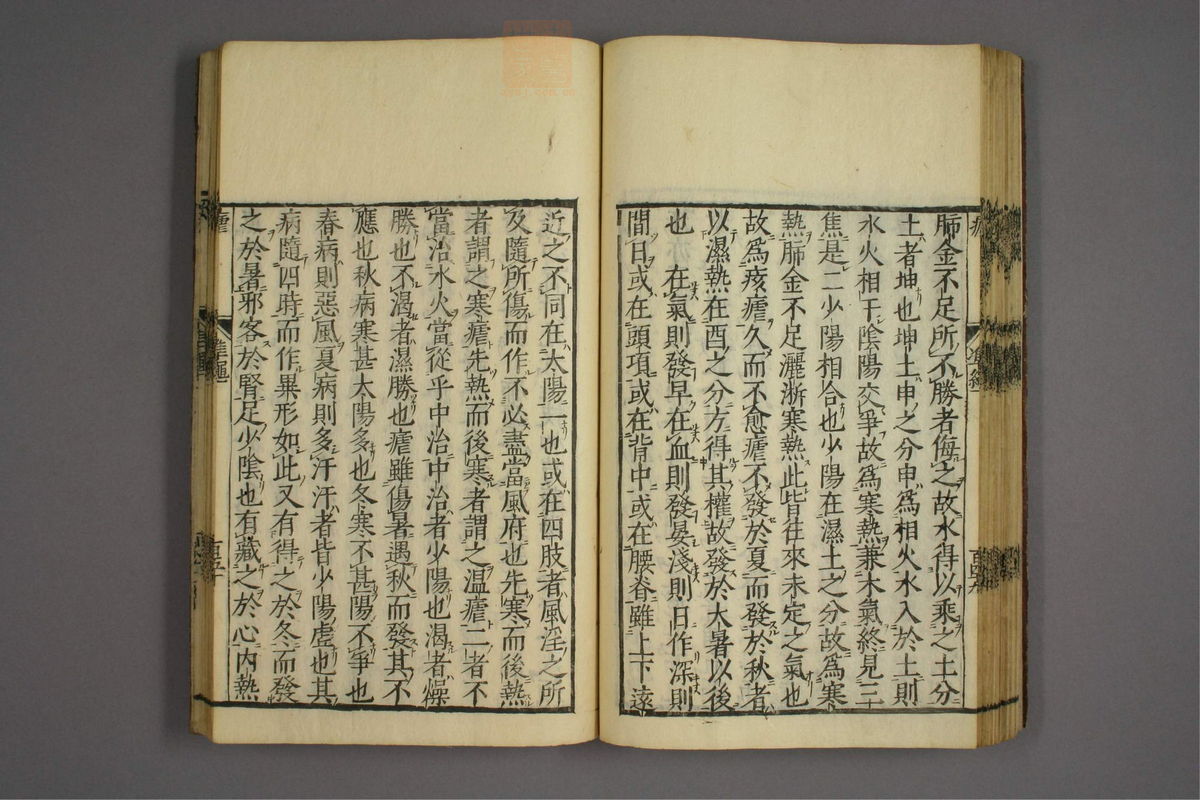 肺金不足所不勝者侮之故水得以乘之土分
土者坤也坤土申之分申為相火水入於土則
水火相干陰陽交爭故為寒熱兼木氣終見三
焦是二少陽相合也少陽在濕土之分故為寒
熱肺金不足灑淅寒熱此皆往來未定之氣也
故為痎瘧久而不愈瘧不發於夏而發於秋者
以濕熱在酉之分方得其權故發於大暑以後
也 在氣則發早在血則發晏淺則日作深則
間日或在頭項或在背中或在腰脊雖上下遠
近之不同在太陽一也或在四肢者風淫之所
及隨所傷而作不必盡當風府也先寒而後熱
者謂之寒瘧先熱而後寒者謂之溫瘧二者不
當治水火當從乎中治中治者少陽也渴者燥
勝也不渴者濕勝也瘧雖傷暑遇秋而發其不
應也秋病寒甚太陽多也冬寒不甚陽不爭也
春病則惡風夏病則多汗汗者皆少陽虛也其
病隨四時而作異形如此又有得之於冬而發
之於暑邪客於腎足少陰也有藏之於心內熱
瘧